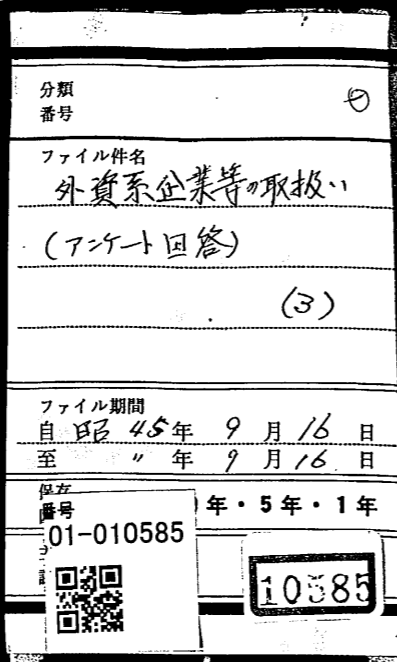 分類
番号
ファイル件名
外資系企業等の取扱い
(アンケート回答)
(3)
ファイル期間
自 昭 45年 9月 16日
至 〃 年 9月 16日
保存
年・5年・1年
番号
01-010585
10585